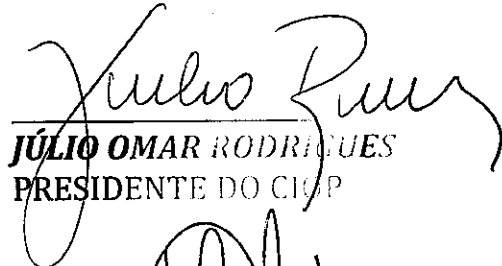 JÚLIO OMAR RODRIGUES
PRESIDENTE DO CIOP